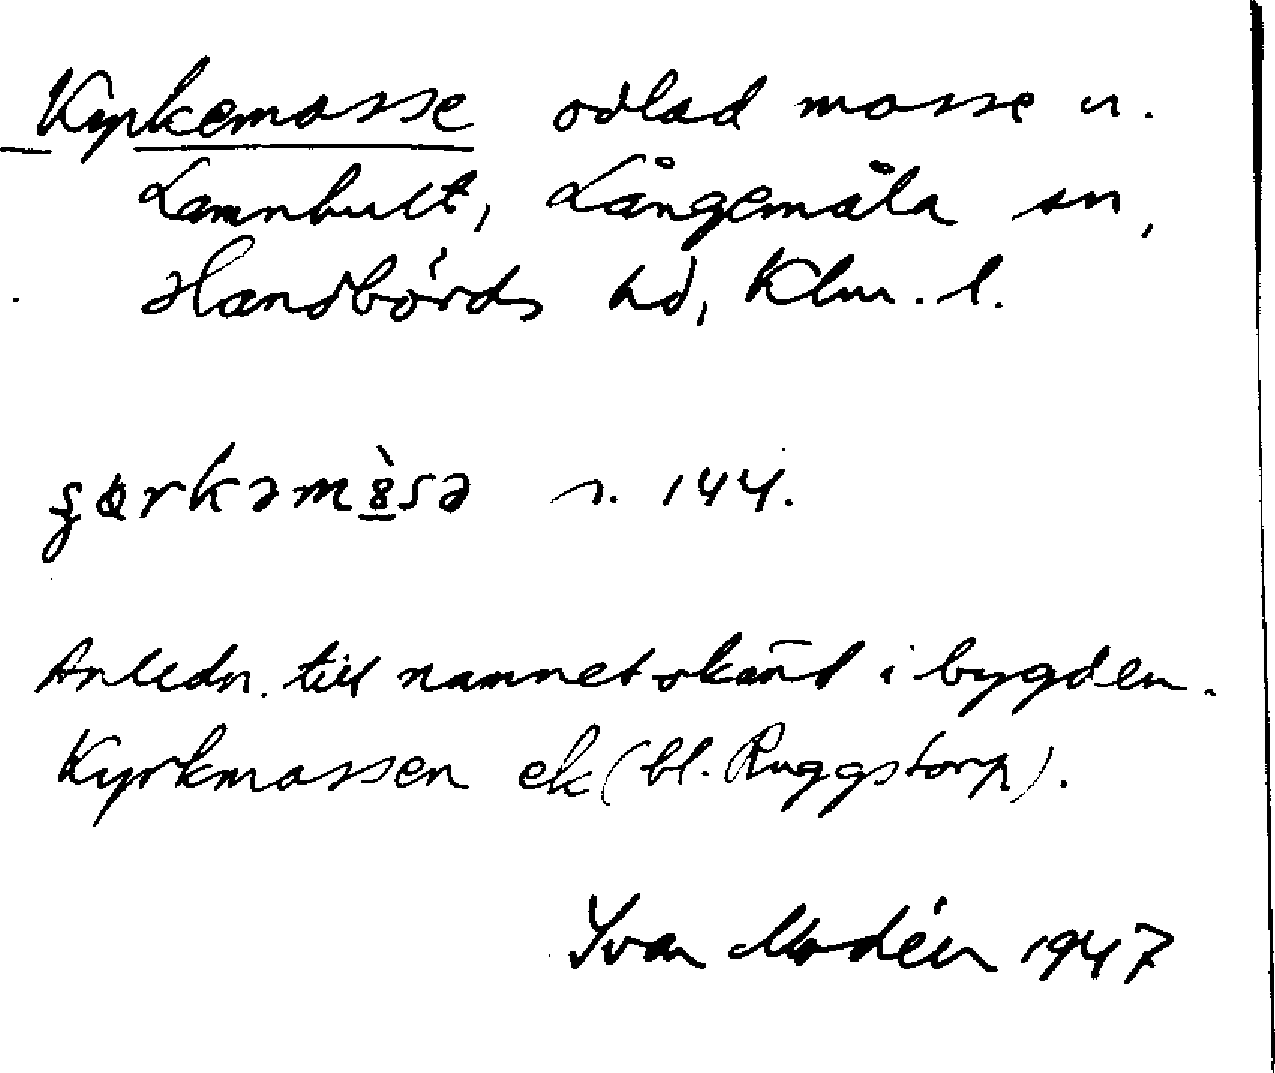 Kyrkemosse odlad mosse u.
Lamnhult, Långemåla sn,
Handbörds hd, Klm. l.
s. 144.
Anledn. till namnet okänd i bygden.
Kyrkmossen ek (bl. Ruggstorp).
Ivar Modéer 1947